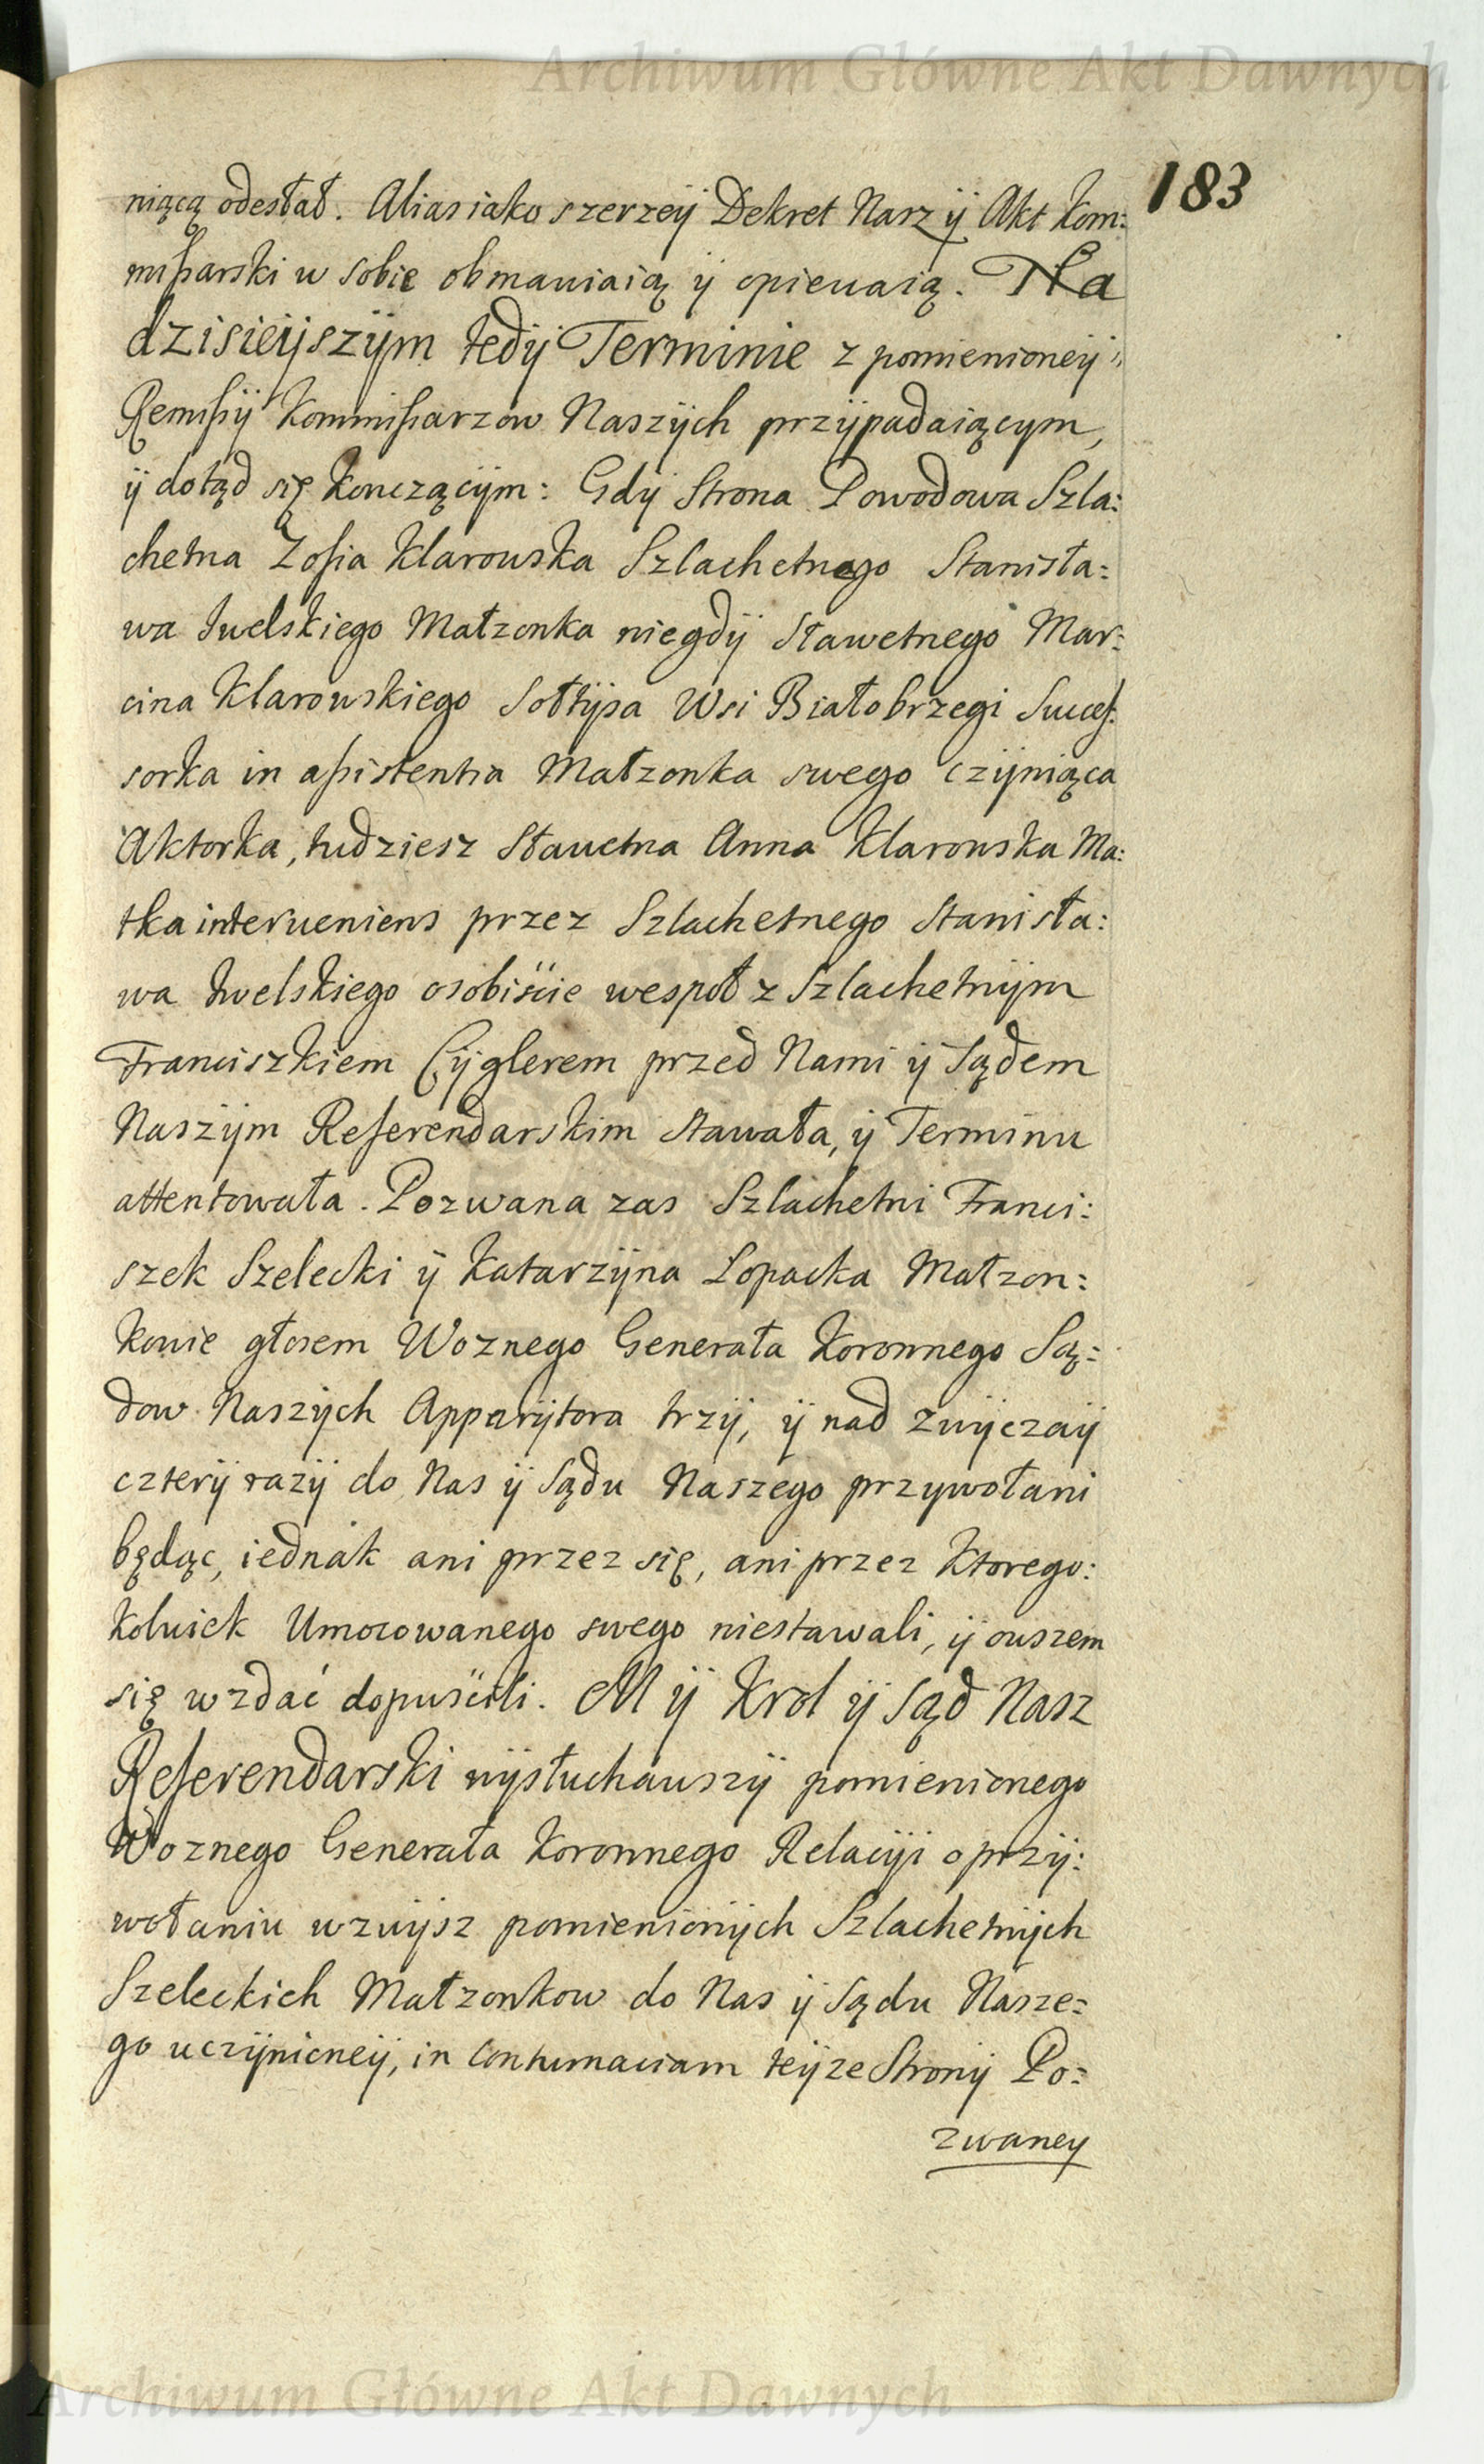 Archiwum Główne Akt Dawnych
183
niącą odesłał. Alias iako szerzeÿ Dekret Nasz ÿ Akt Kom:
mißarski w sobie obmawiaią ÿ opiewaią. Na
dzisieÿszÿm tedÿ Terminie z pomienioneÿ
Remißÿ Kommißarzow Naszÿch przÿpadaiącym,
ÿ dotąd się Konczącÿm: Gdÿ Strona Powodowa Szla:
chetna Zofia Klarowska Szlachetnego Stanisła:
wa Iwelskiego Małzonka niegdÿ Sławetnego Mar:
cina Klarowskiego Sołtÿsa Wsi Białobrzegi Succes:
sorka in aßistentia Małzonka swego czÿniąca
Aktorka, tudziesz Sławetna Anna Klarowska Ma:
tka interveniens przez Szlachetnego Stanisła:
wa Iwelskiego osobiście wespoł z Szlachetnÿm
Franciszkiem Cÿglerem przed Nami ÿ Sądem
Naszÿm Referendarskim stawała, ÿ Terminu
attentowała. Pozwana zas Szlachetni Franci:
szek Szelecki ÿ Katarzÿna Lopacka Małzon:
kowie głosem Woznego Generała Koronnego Są:
dow Naszÿch Apparÿtora trzÿ, ÿ nad zwÿczaÿ
czterÿ razÿ do Nas ÿ Sądu Naszego przywołani
będąc, iednak ani przez się, ani przez Ktorego:
kolwiek Umocowanego swego niestawali, ÿ owszem
się wzdać dopuścili. MÿKrol ÿ Sąd Nasz
Referendarski wÿsłuchawszÿ pomienionego
Woznego Generała Koronnego Relacÿi o przÿ:
wołaniu wzwÿsz pomienionÿch Szlachetnÿch
Szeleckich Małzonkow do Nas ÿ Sądu Nasze:
go uczÿnioneÿ, in Contumaciam teÿze Stronÿ Po:
zwaney
Archiwum Główne Akt Dawnych